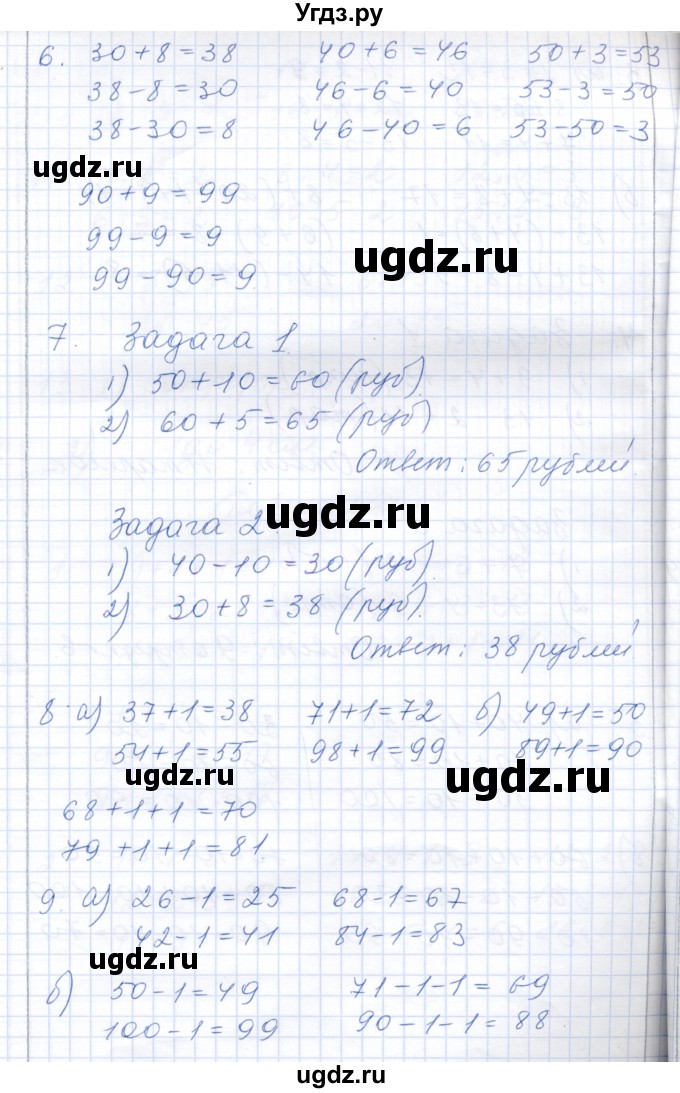 Угдз.ру
6. 30+8=38 40+6=46 50+3=53
38-8=30 46-6=40 53-3=50
38-30=8 46-40=6 53-50=3
ugdz.ru
90+9=99
99-9=9
ugdz.ru
99-90=9
7. Задача 1
1) 50+10=60 (руб).
2) 60+5=65 (руб)
Ответ: 65 рублей.
ugdz.ru
Задача 2.
1) 40-10=30 (руб).
2) 30+8=38 (руб).
ugdz.ru
Ответ: 38 рублей
8. а) 37+1=38 71+1=72 б) 49+1=50
54+1=55 98+1=99 89+1=90
ugdz.ru ugdz.ru
68+1+1=70
79+1+1=81.
9. а) 26-1=25 68-1=67
42-1=41 84-1=83
ugdz.ru
б) 50-1=49 71-1-1=69
100-1=99 90-1-1=88.
ugdz.ru